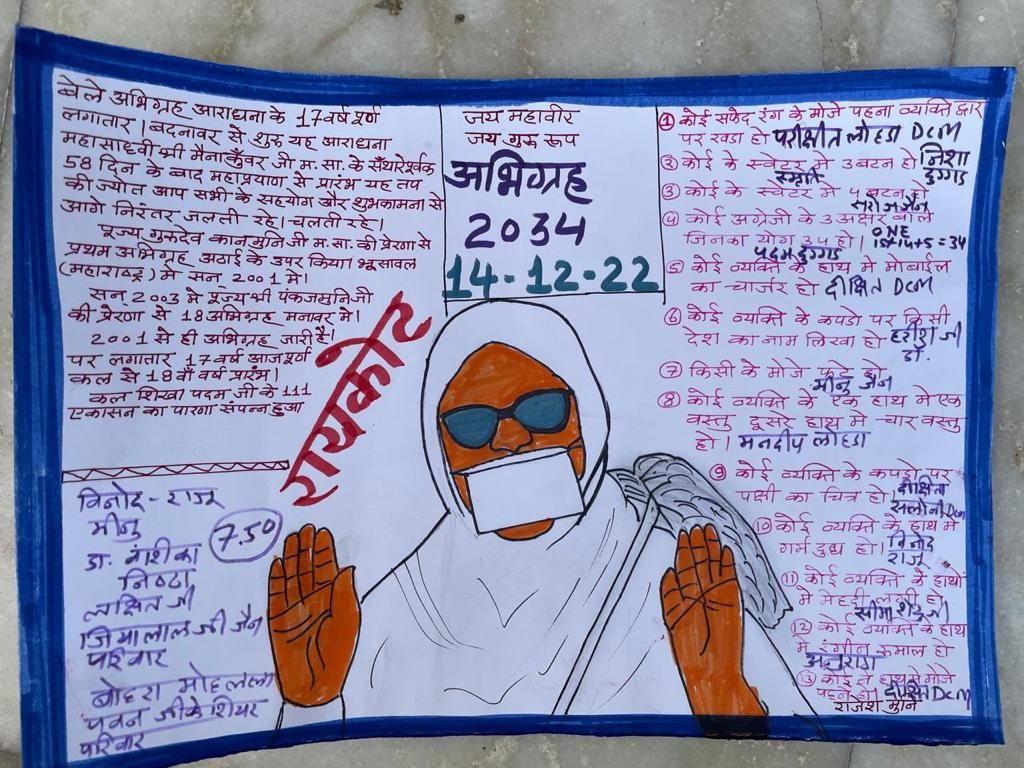 बेले अभिग्रह आराधना के 17 वर्ष पूर्ण
लगातार। बदनावर से शुरू यह आराधना
महासाध्वी श्री मैनाकुँवर जी म.सा. के संथारेपूर्वक
58 दिन के बाद महाप्रयाण से प्रारंभ यह तप
की ज्योत आप सभी के सहयोग और शुभकामना से
आगे निरंतर जलती रहे। चलती रहे।
पूज्य गुरुदेव कानमुनि जी म.सा. की प्रेरणा से
प्रथम अभिग्रह अठाई के उपर किया। भूसावल
(महाराष्ट्र) में सन 2001 में।
सन् 2003 मे पूज्य श्री पंकजमुनिजी
की प्रेरणा से 18 अभिग्रह मनावर मे।
2001 से ही अभिग्रह जारी है।
पर लगातार 17 वर्ष आज पूर्ण
कल से 18 वाँ वर्ष प्रारंभ।
कल शिखा पदम जी के 111
एकासन का पारणा संपन्न हुआ
जय महावीर
जय गुरु रूप
अभिग्रह
2034
14-12-22
रायकोट
① कोई सफेद रंग के मोजे पहना व्यक्ति द्वार
पर खडा हो परीक्षीत लोहडा DCM
② कोई के स्वेटर मे 3 बटन हो निशा
डुग्गड
③ कोई के स्वेटर मे 4 बटन हो
सरोज जैन
④ कोई अंग्रेजी के 3 अक्षर वाले
जिनका योग 34 हो। ONE
15+14+5=34
पदम डुग्गड
⑤ कोई व्यक्ति के हाथ मे मोबाईल
का चार्जर हो दीक्षित DCM
⑥ कोई व्यक्ति के कपडो पर किसी
देश का नाम लिखा हो हरीश जी
डॉ.
⑦ किसी के मोजे फटे हो
मीनू जैन
⑧ कोई व्यक्ति के एक हाथ मे एक
वस्तु दूसरे हाथ मे चार वस्तु
हो। मनदीप लोहडा
⑨ कोई व्यक्ति के कपड़ो पर
पक्षी का चित्र हो। दीक्षित
सलोनी DCM
⑩ कोई व्यक्ति के हाथ मे
गर्म दुध हो। विनोद
राजू
⑪ कोई व्यक्ति के हाथों
मे मेहंदी लगी हो
सीमा जी
⑫ कोई व्यक्ति के हाथ
मे रंगीन रुमाल हो
अनुराग
⑬ कोई ने हाथ मे मोजे
पहने हो। दीक्षित DCM
राजेश मुनि
विनोद - राजू
मीनु
7.50
डा. वंशीका
निष्ठा
लक्षित जी
जियालाल जी जैन
परिवार
बोहरा मोहल्ला
पवन जी के शियर
परिवार